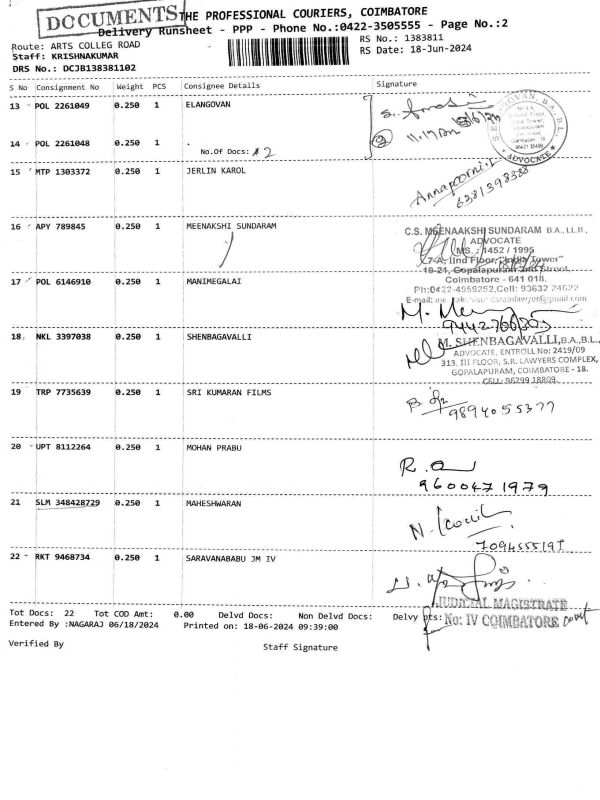 DOCUMENTS THE PROFESSIONAL COURIERS, COIMBATORE
Delivery Runsheet - PPP - Phone No.:0422-3505555 - Page No.:2
Route: ARTS COLLEG ROAD
RS No.: 1383811
Staff: KRISHNAKUMAR
RS Date: 18-Jun-2024
DRS No.: DCJB138381102
S No Consignment No Weight PCS Consignee Details Signature
13 POL 2261049 0.250 1 ELANGOVAN
11.17 Am
14 POL 2261048 0.250 1 .
No.Of Docs: 2
ADVOCATE
15 MTP 1303372 0.250 1 JERLIN KAROL
Annapoorni.
6381398388
16 APY 789845 0.250 1 MEENAKSHI SUNDARAM
C.S. MEENAAKSHI SUNDARAM B.A., LL.B.,
ADVOCATE
MS. : 1452 / 1995
7-A, IInd Floor, "India Tower"
19-21, Gopalapuram 2nd Street,
Coimbatore - 641 018.
Ph:0422-4959252,Cell: 93632 24622
17 POL 6146910 0.250 1 MANIMEGALAI
9442766303
18 NKL 3397038 0.250 1 SHENBAGAVALLI
M. SHENBAGAVALLI,B.A.,B.L.,
ADVOCATE, ENTROLL No: 2419/09
313, III FLOOR, S.R. LAWYERS COMPLEX,
GOPALAPURAM, COIMBATORE - 18.
CELL: 96299 18809.
19 TRP 7735639 0.250 1 SRI KUMARAN FILMS
9894055377
20 UPT 8112264 0.250 1 MOHAN PRABU
9600471979
21 SLM 348428729 0.250 1 MAHESHWARAN
7094555191
22 RKT 9468734 0.250 1 SARAVANABABU JM IV
JUDICIAL MAGISTRATE
No: IV COIMBATORE court
Tot Docs: 22 Tot COD Amt: 0.00 Delvd Docs: Non Delvd Docs: Delvy pts:
Entered By :NAGARAJ 06/18/2024 Printed on: 18-06-2024 09:39:00
Verified By
Staff Signature